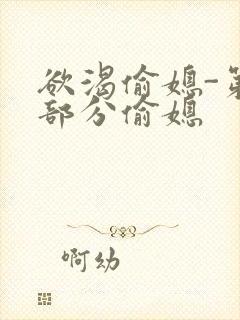 欲渴偷媳-第
部分偷媳
啊幼